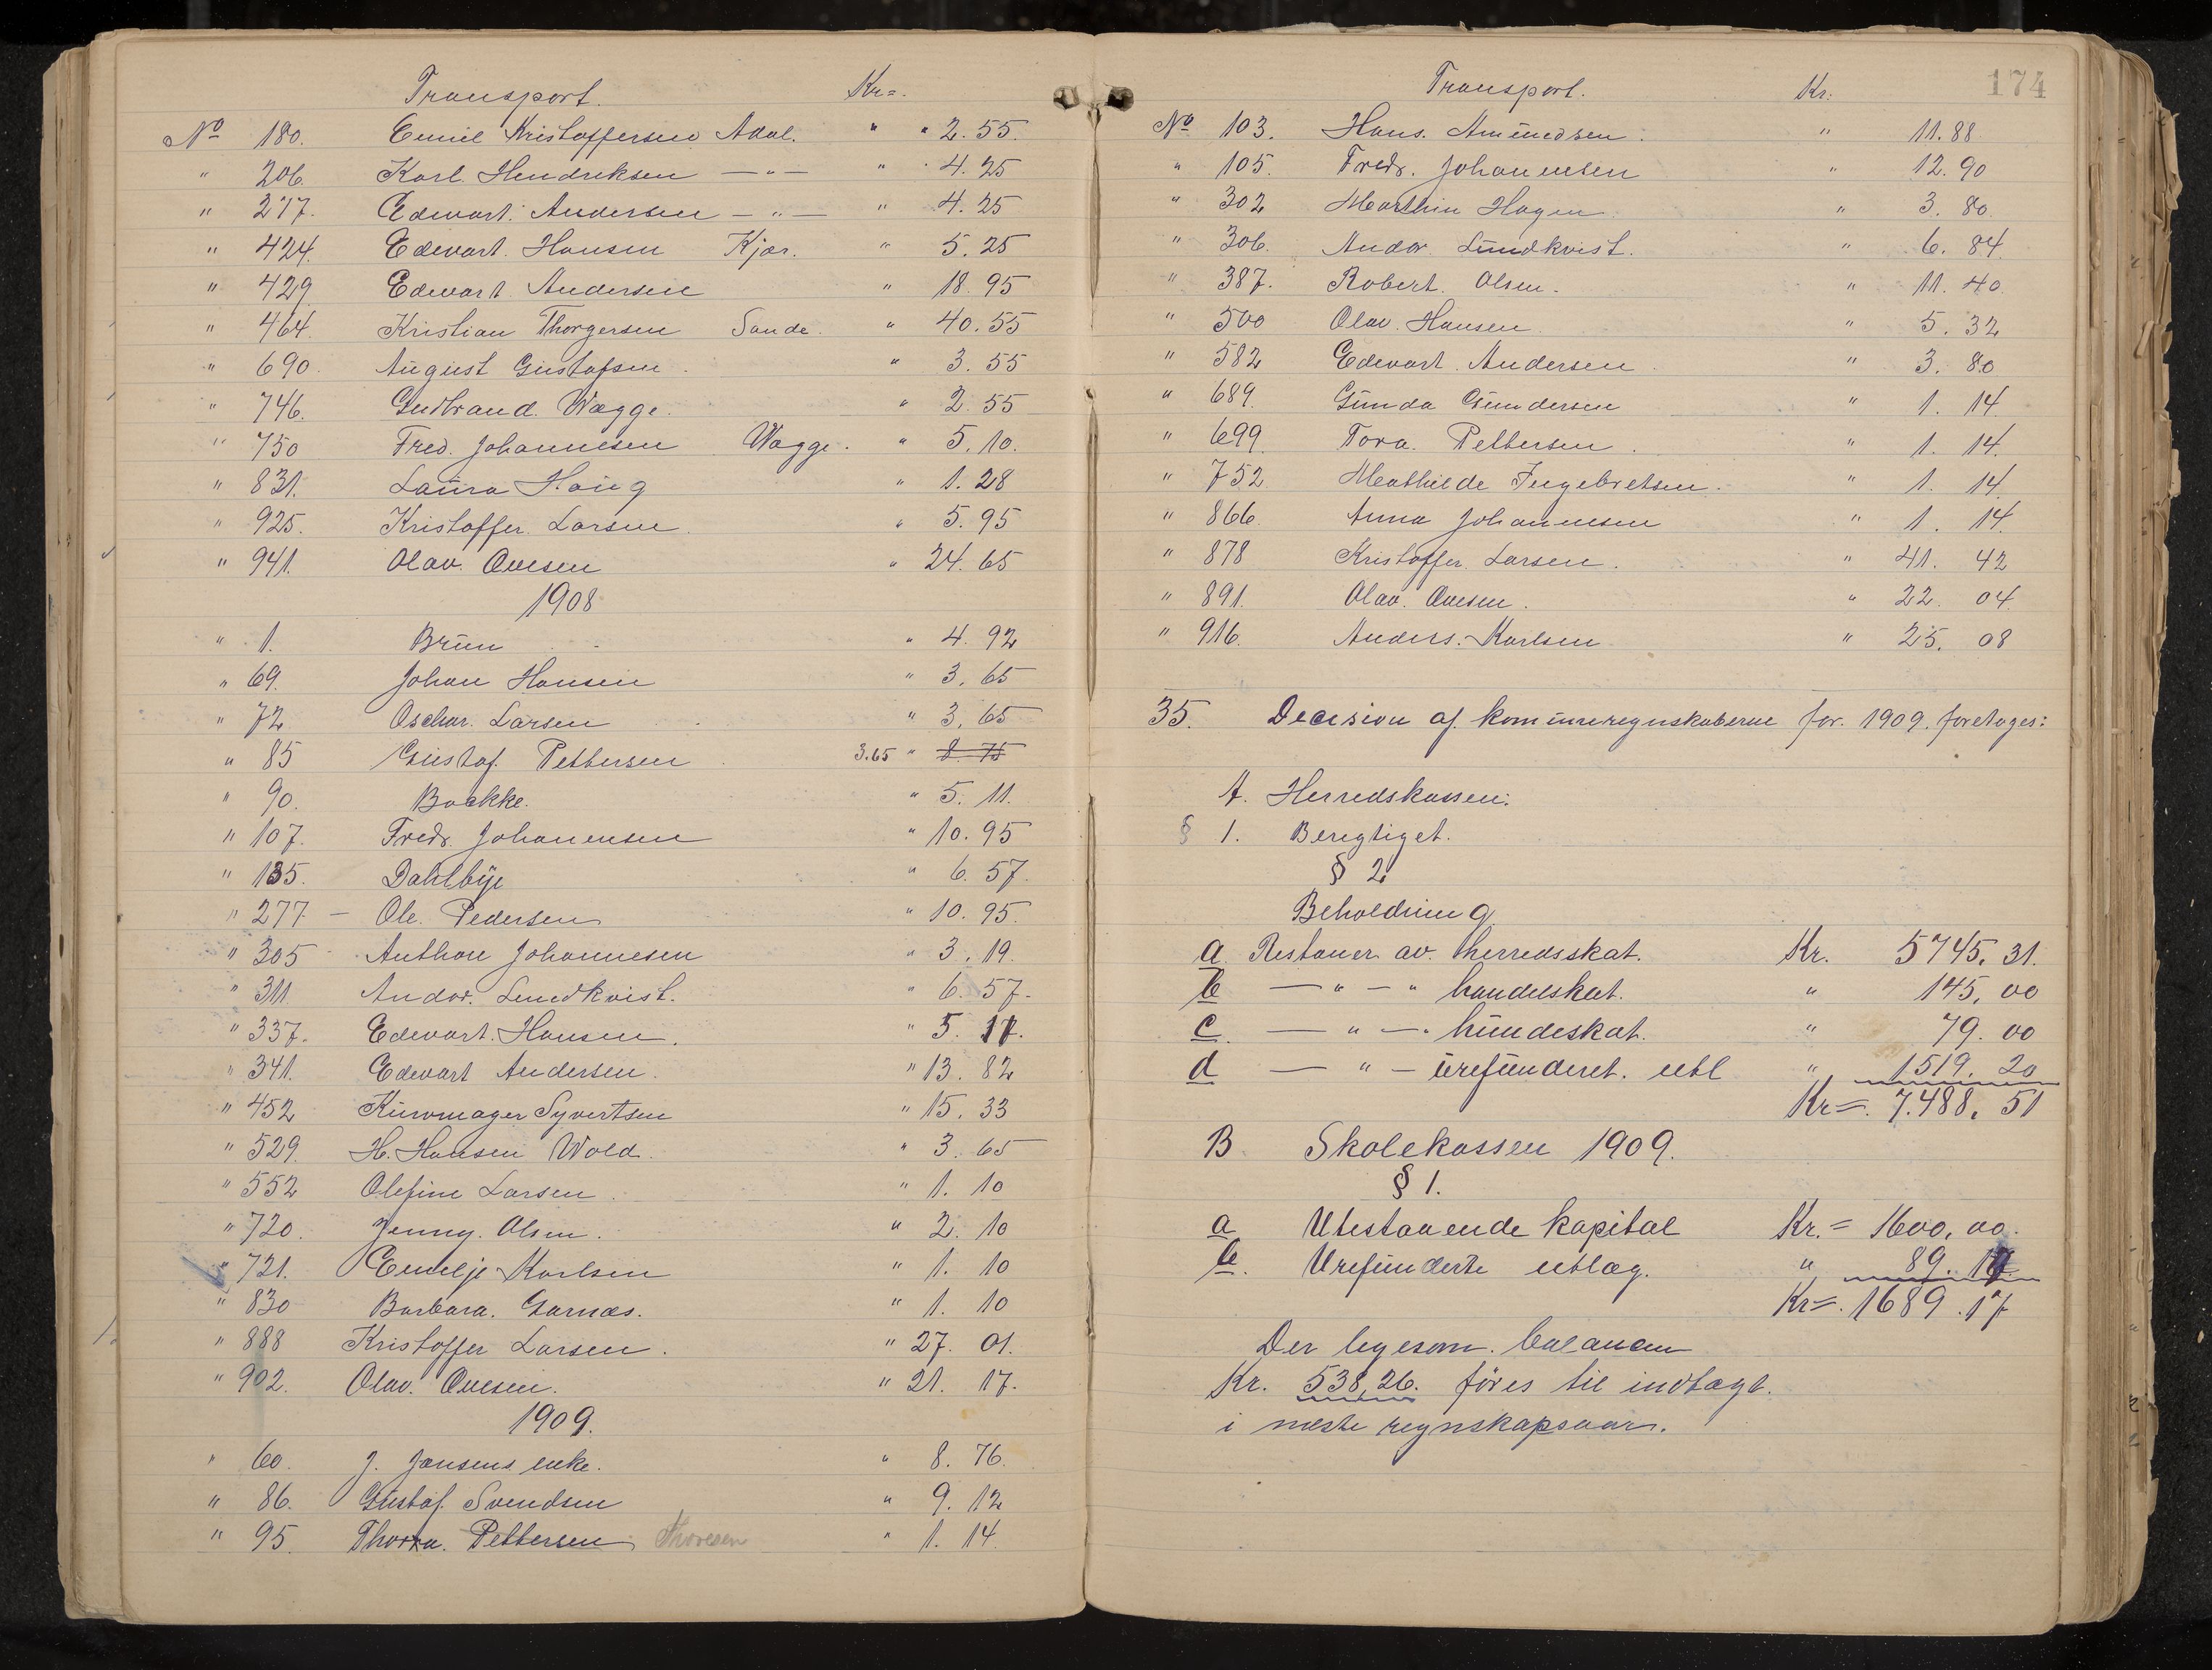 Transport. Kr=.
No 180. Emil Kristoffersen Adal. " " 2.55.
" 206. Karl Hendriksen —"— " 4.25
" 277. Edevart Andersen —"— " 4.25
" 424. Edevart Hansen Kjær. " 5.25
" 429 Edevart Andersen " 18.95
" 464. Kristian Thorgersen Sande. " 40.55
" 690. August Gustafsen. " 3.55
" 746. Gudbrand Wægge. " 2.55
" 750 Fred. Johannesen Wægge. " 5.10.
" 831. Laura Haug " 1.28
" 925. Kristoffer Larsen. " 5.95
" 941. Olav. Ovesen " 24.65
1908
" 1. Brun " 4.92
" 69. Johan Hansen " 3.65
" 72 Oschar. Larsen " 3.65
" 85 Gustaf. Pettersen 3.65 " 8.75
" 90. Backke. " 5.11.
" 107. Fredr. Johannensen " 10.95
" 135. Dahlbye " 6.57.
" 277 — Ole. Pedersen " 10.95.
" 305 Anthon Johannesen " 3.19.
" 311 Andor. Lundkvist. " 6.57.
" 337. Edevart. Hansen. " 5.11.
" 341. Edevart Andersen. " 13.82
" 452 Kurvmager Syvertsen " 15.33
" 529. H. Hansen Wold. " 3.65
" 552 Olefine Larsen. " 1.10
" 720. Jenny. Olsen. " 2.10
" 721. Emelje Karlsen " 1.10
" 830 Barbara. Garnæs. " 1.10
" 888 Kristoffer Larsen. " 27.01.
" 902. Olav. Ovesen. " 21.17.
1909.
" 60. J. Jansens enke. " 8.76.
" 86. Gustaf. Svendsen " 9.12
" 95. Thorra. Pettersen Thoresen " 1.14.
174
Transport. Kr:
No 103. Hans. Amundsen. " 11.88
" 105. Fredr. Johannensen " 12.90
" 302 Marthin Hagen " 3.80.
" 306. Andor. Lundkvist. " 6.84.
" 387. Robert. Olsen. " 11.40.
" 500 Olav. Hansen. " 5.32
" 582 Edevart. Andersen. " 3.80
" 689. Gunda Gundersen " 1.14.
" 699. Tora. Pettersen. " 1.14.
" 752 Mathilde Ingebretsen. " 1.14.
" 866. Anna Johannesen " 1.14.
" 878 Kristoffer Larsen. " 41.42
" 891. Olav. Ovesen. " 22.04.
" 916. Anders. Karlsen " 25.08
35. Decision af kommuneregnskaberne for. 1909. foretages:
A. Herredskassen.
§ 1. Berigtiget.
§ 2.
Beholdning
a Restancer av. herredsskat. Kr. 5745,31.
b —"—" handelskat. " 145,00
c. —"—" hundeskat. " 79.00
d —"— urefunderet. utl " 1519.20
Kr=. 7.488,51
B Skolekassen 1909.
§ 1.
a Utestaaende kapital Kr.= 1600,00.
b. Urefunderte utlæg. " 89.17.
Kr=. 1689.17
Der ligesom. balancen
Kr. 538,26. føres til indtægt.
i næste regnskapsaar.